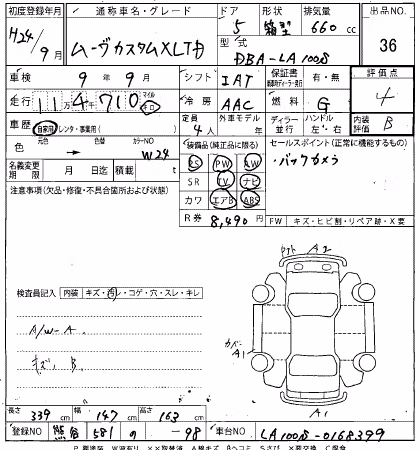 初度登録年月 通称車名・グレード ドア 形状 排気量 出品NO.
H24年 9月 ムーヴカスタムXLTD 5 箱型 660 cc 36
型式 DBA-LA100S
車検 9年 9月 シフト IAT 保証書 有・無 評価点
走行 11万4710 マイル キロ 冷房 AAC 燃料 G 4
車歴 自家用 レンタ・事業用( ) 定員 4人 外車モデル 年 ディーラー 並行 ハンドル 左・右 内装評価 B
色 元色 → 色替 カラーNO W24 装備品(純正品に限る) セールスポイント(正常に機能するもの)
PS PW AW ・バックカメラ
名義変更期限 月 日迄 積載 t SR TV ナビ
注意事項(欠品・修復・不具合箇所および状態) カワ エアB ABS
R券 8,490円 FW キズ・ヒビ割・リペア跡・X要
検査員記入 内装 キズ・汚レ・コゲ・穴・スレ・キレ
A/W-A
キズ、B
A2
カバー A1
A1
長さ 339 cm 幅 147 cm 高さ 163 cm
登録NO 熊谷 581 の -98 車台NO LA100S-0168399